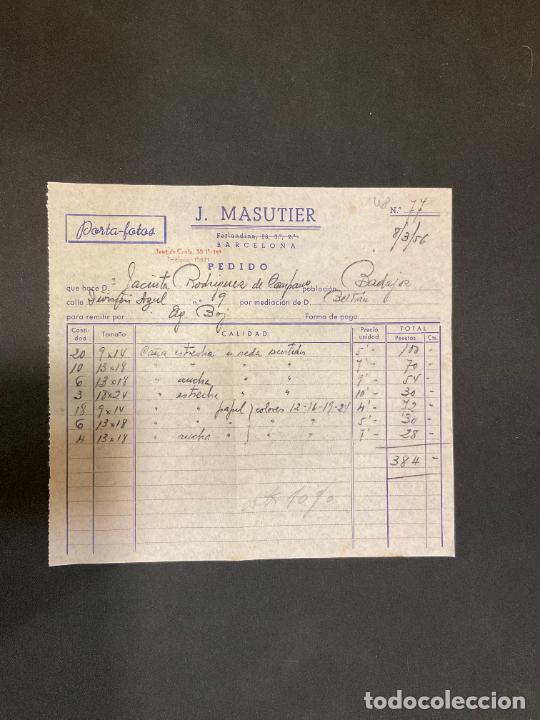 J. MASUTIER
Porta-fotos
Ferlandina,
BARCELONA
N.º 77
8/3/56
PEDIDO
que hace D. Jacinta Rodriguez de Campano población Badajoz
calle División Azul n.º 19 por mediación de D. Beltrán
para remitir por Ag. Boj Forma de pago
Canti-dad Tamaño CALIDAD Precio unidad TOTAL Pesetas Cts.
20 9x14 Caña estrecha en seda surtidas 5'- 100 -
10 13x18 " " " " 7'- 70 -
6 13x18 " ancha " " 9'- 54 -
3 18x24 " estrecha " " 10'- 30 -
18 9x14 " " papel colores 12-16-19-24 4'- 72 -
6 13x18 " " " " " 5'- 30 -
4 13x18 " ancha " " " 7'- 28 -
384 -
10%
todocoleccion
todocoleccion.net